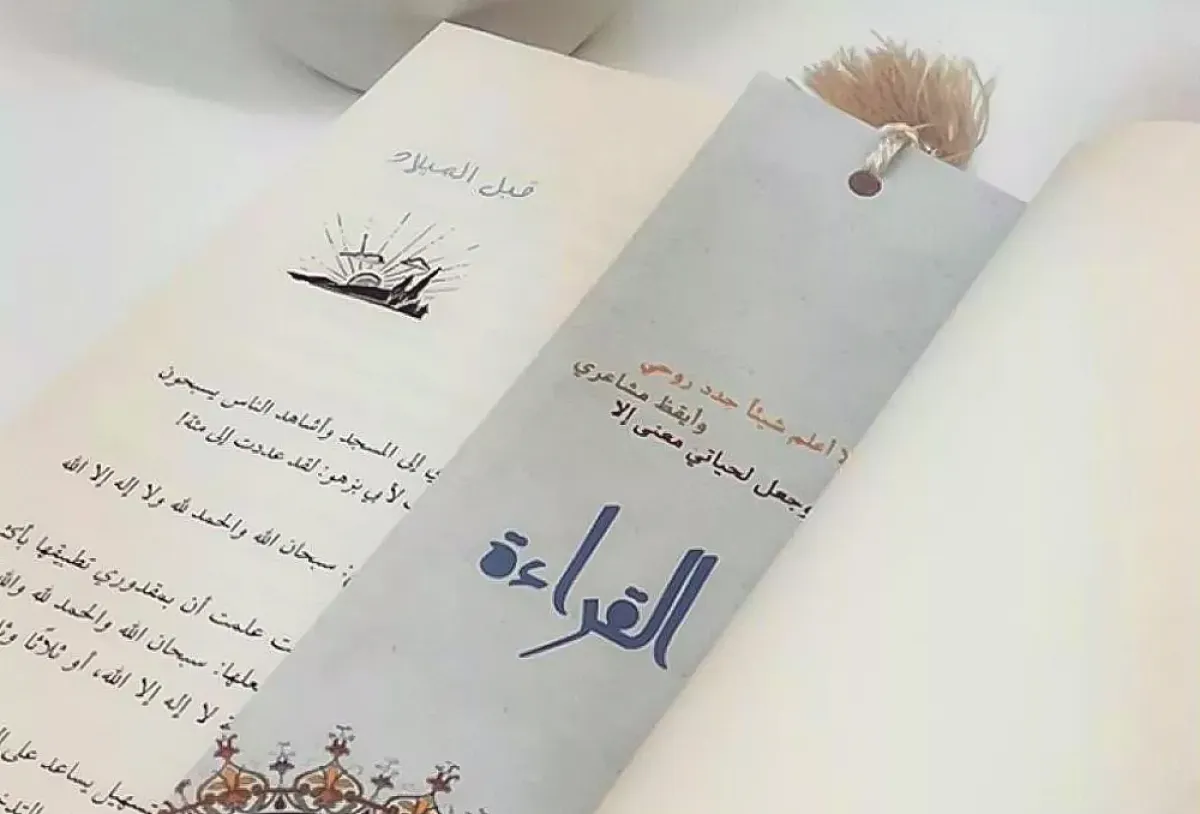 قبل الميلاد
ي إلى المسجد وأشاهد الناس يسبحون
لأبي بزهو: لقد عددت إلى مئة!
سبحان الله والحمد لله ولا إله إلا الله
ت علمت أن بمقدوري تطبيقها بأي
علها: سبحان الله والحمد لله والله
لا إله إلا الله، أو ثلاثًا وثلا
تسهيل يساعد على ال
لا أعلم شيئاً جدد روحي
وأيقظ مشاعري
وجعل لحياتي معنى إلا
القراءة